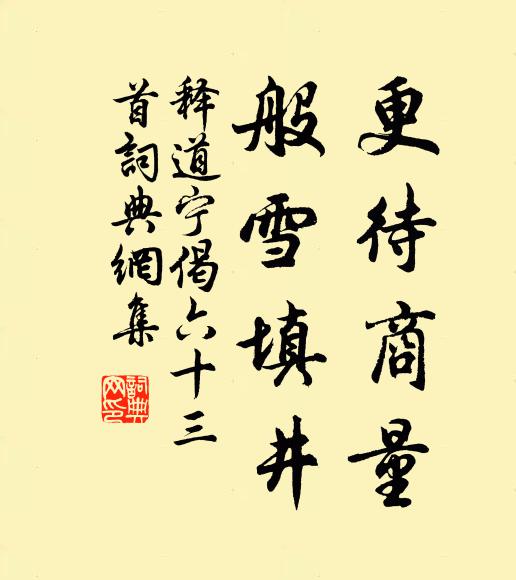 更待商量
般雪填井
释道宁偈六十三
首詞典網集
詞典
网印